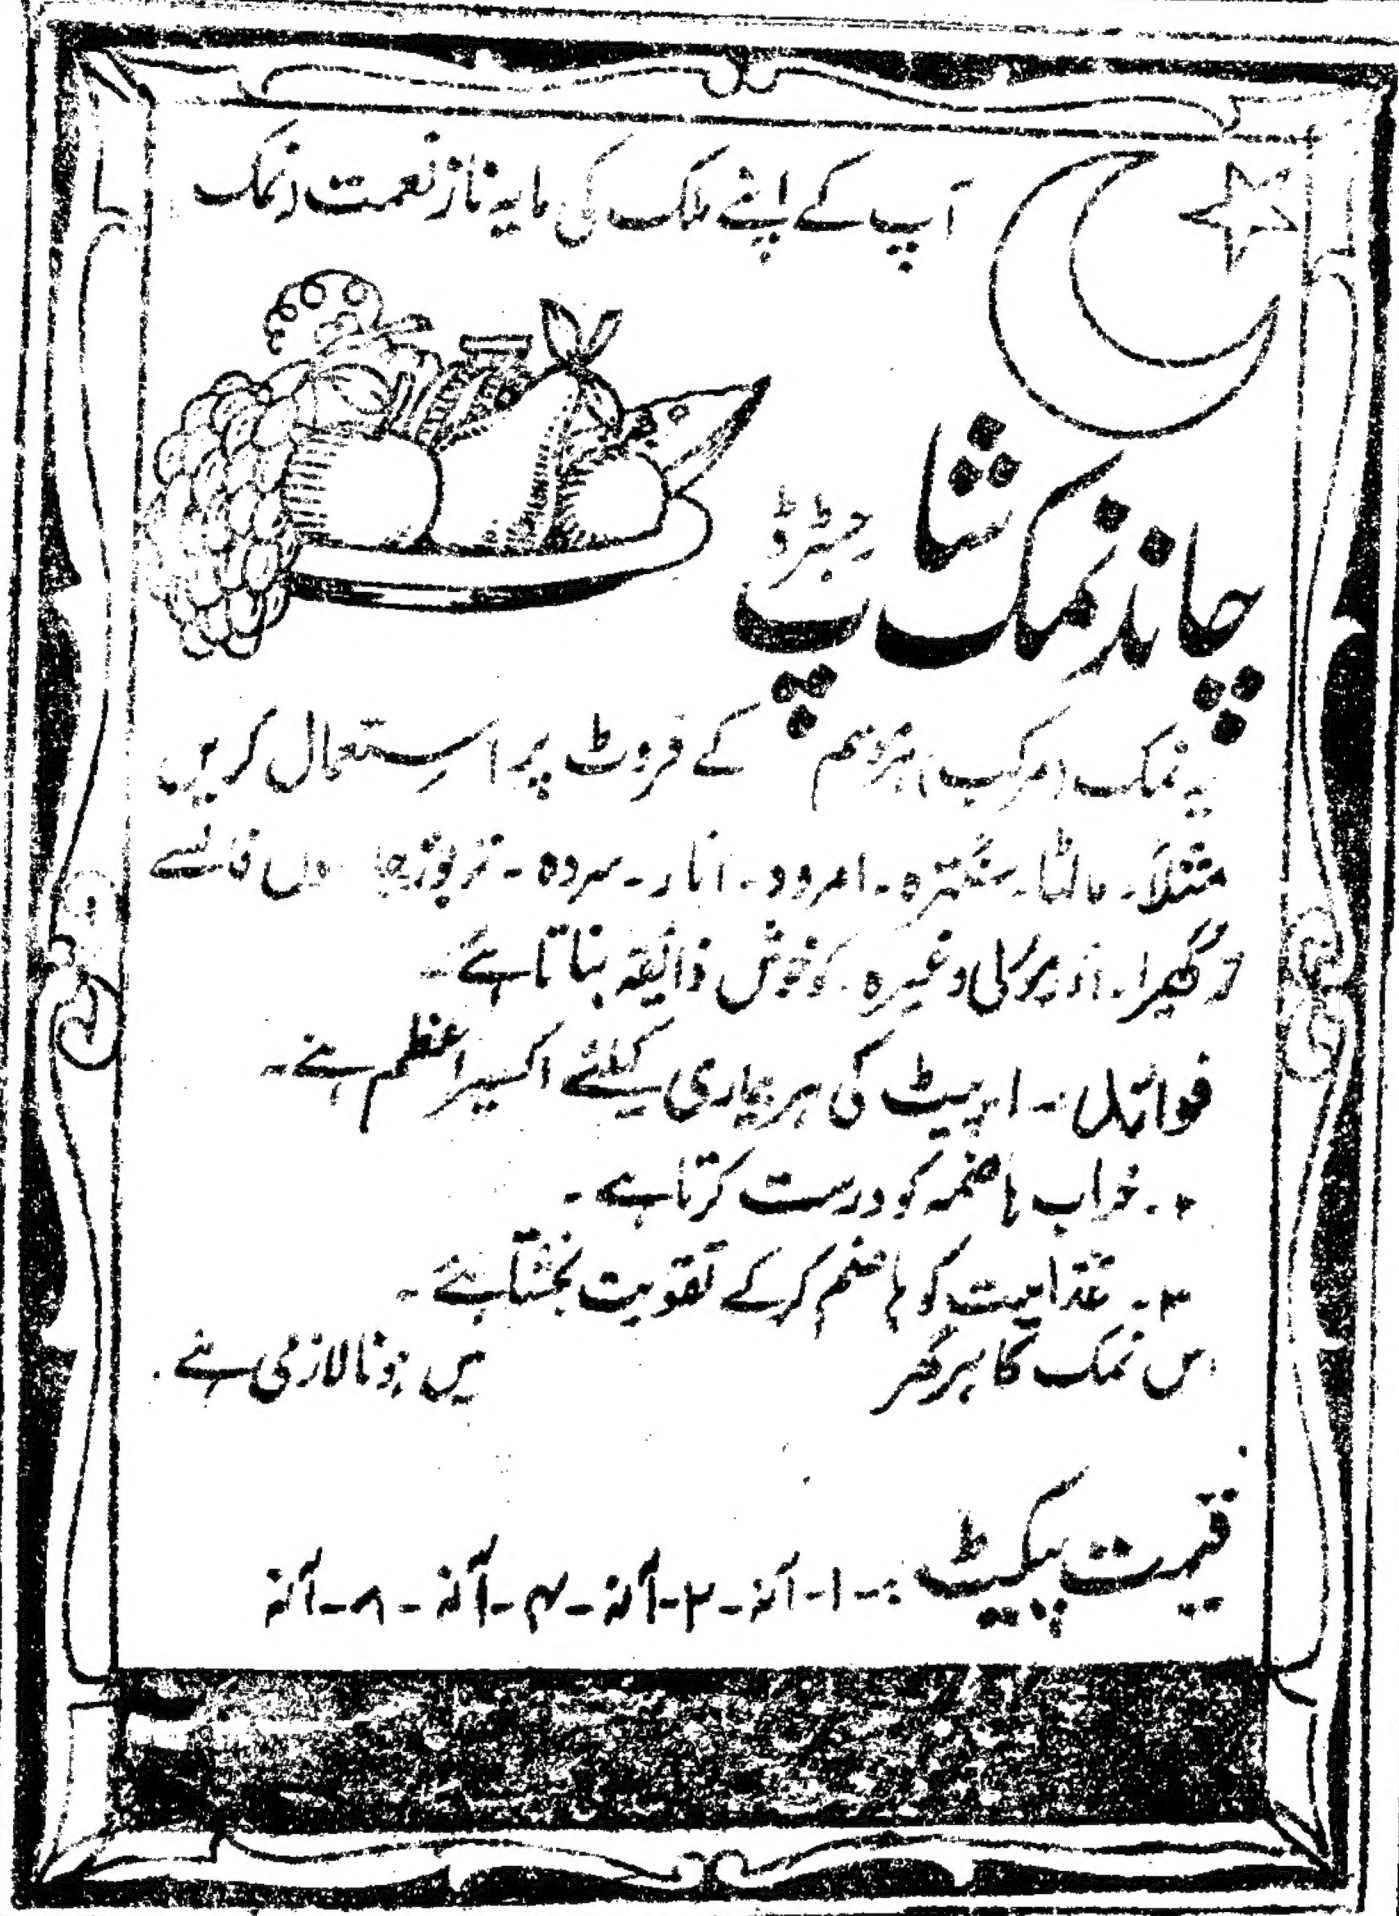 آپ کے اپنے ملک کی مایہ ناز نعمت (نمک
چاند نمک شاپ رجسٹرڈ
یہ نمک (مرکب) ہر قسم کے فروٹ پر استعمال کریں
مثلاً۔ مالٹا۔ سنگترہ۔ امرود۔ انار۔ سردہ۔ تربوز فالسے
کھیرا۔ وغیرہ۔ کو خوش ذائقہ بناتا ہے۔
فوائد :- ۱۔ پیٹ کی ہر بیماری کیلئے اکسیر اعظم ہے۔
۲۔ خراب ہاضمہ کو درست کرتا ہے۔
۳۔ غذائیت کو ہاضم کر کے تقویت بخشتا ہے۔
اس نمک کا ہر گھر میں ہونا لازمی ہے۔
قیمت پیکیٹ :- ۱۔ آنہ ۔ ۲۔ آنہ ۔ ۴۔ آنہ ۔ ۸۔ آنہ